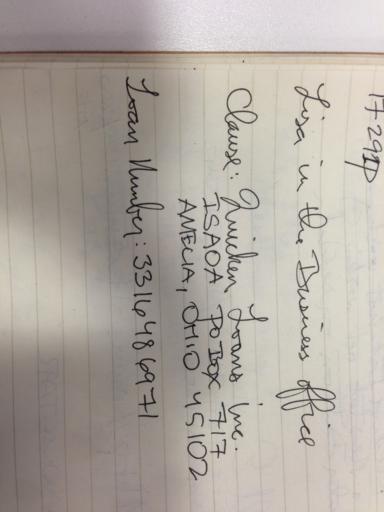 17-291P
Lisa in the Business office
Clause: Quicken Loans Inc.
ISAOA PO Box 717
AMELIA, OHIO 45102
Loan Number: 3316486971